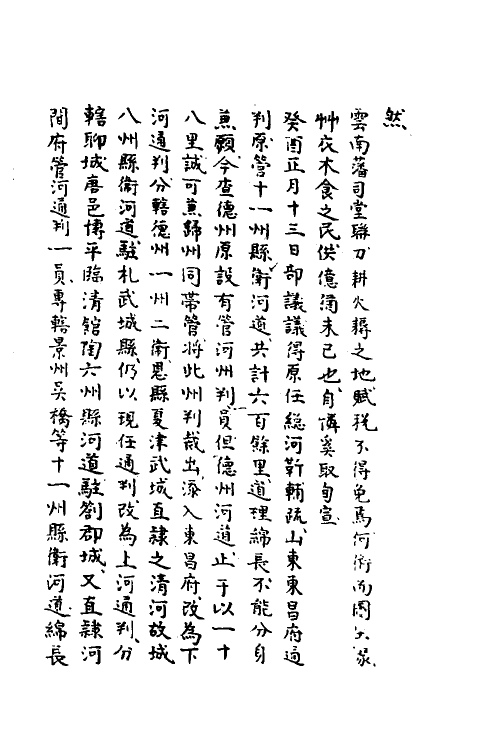 然
雲南藩司堂聯刀耕火耨之地賦稅不得免焉何術而圖大
艸衣木食之民供億猶未已也自慚奚取旬宣
癸酉正月十三日部議議得原任總河靳輔疏山東東昌府通
判原管十一州縣衛河道共計六百餘里道理綿長不能分身
兼顧今查德州原設有管河州判一員但德州河道止于以一十
八里誠可兼歸州同帶管將此州判裁出添入東昌府改為下
河通判分轄德州一州二衛恩縣夏津武城直隸之清河故城
八州縣衛河道駐札武城縣仍以現任通判改為上河通判分
轄聊城唐邑博平臨清館陶六州縣河道駐劄郡城又直隸河
間府管河通判一員專轄景州吳橋等十一州縣衛河道綿長